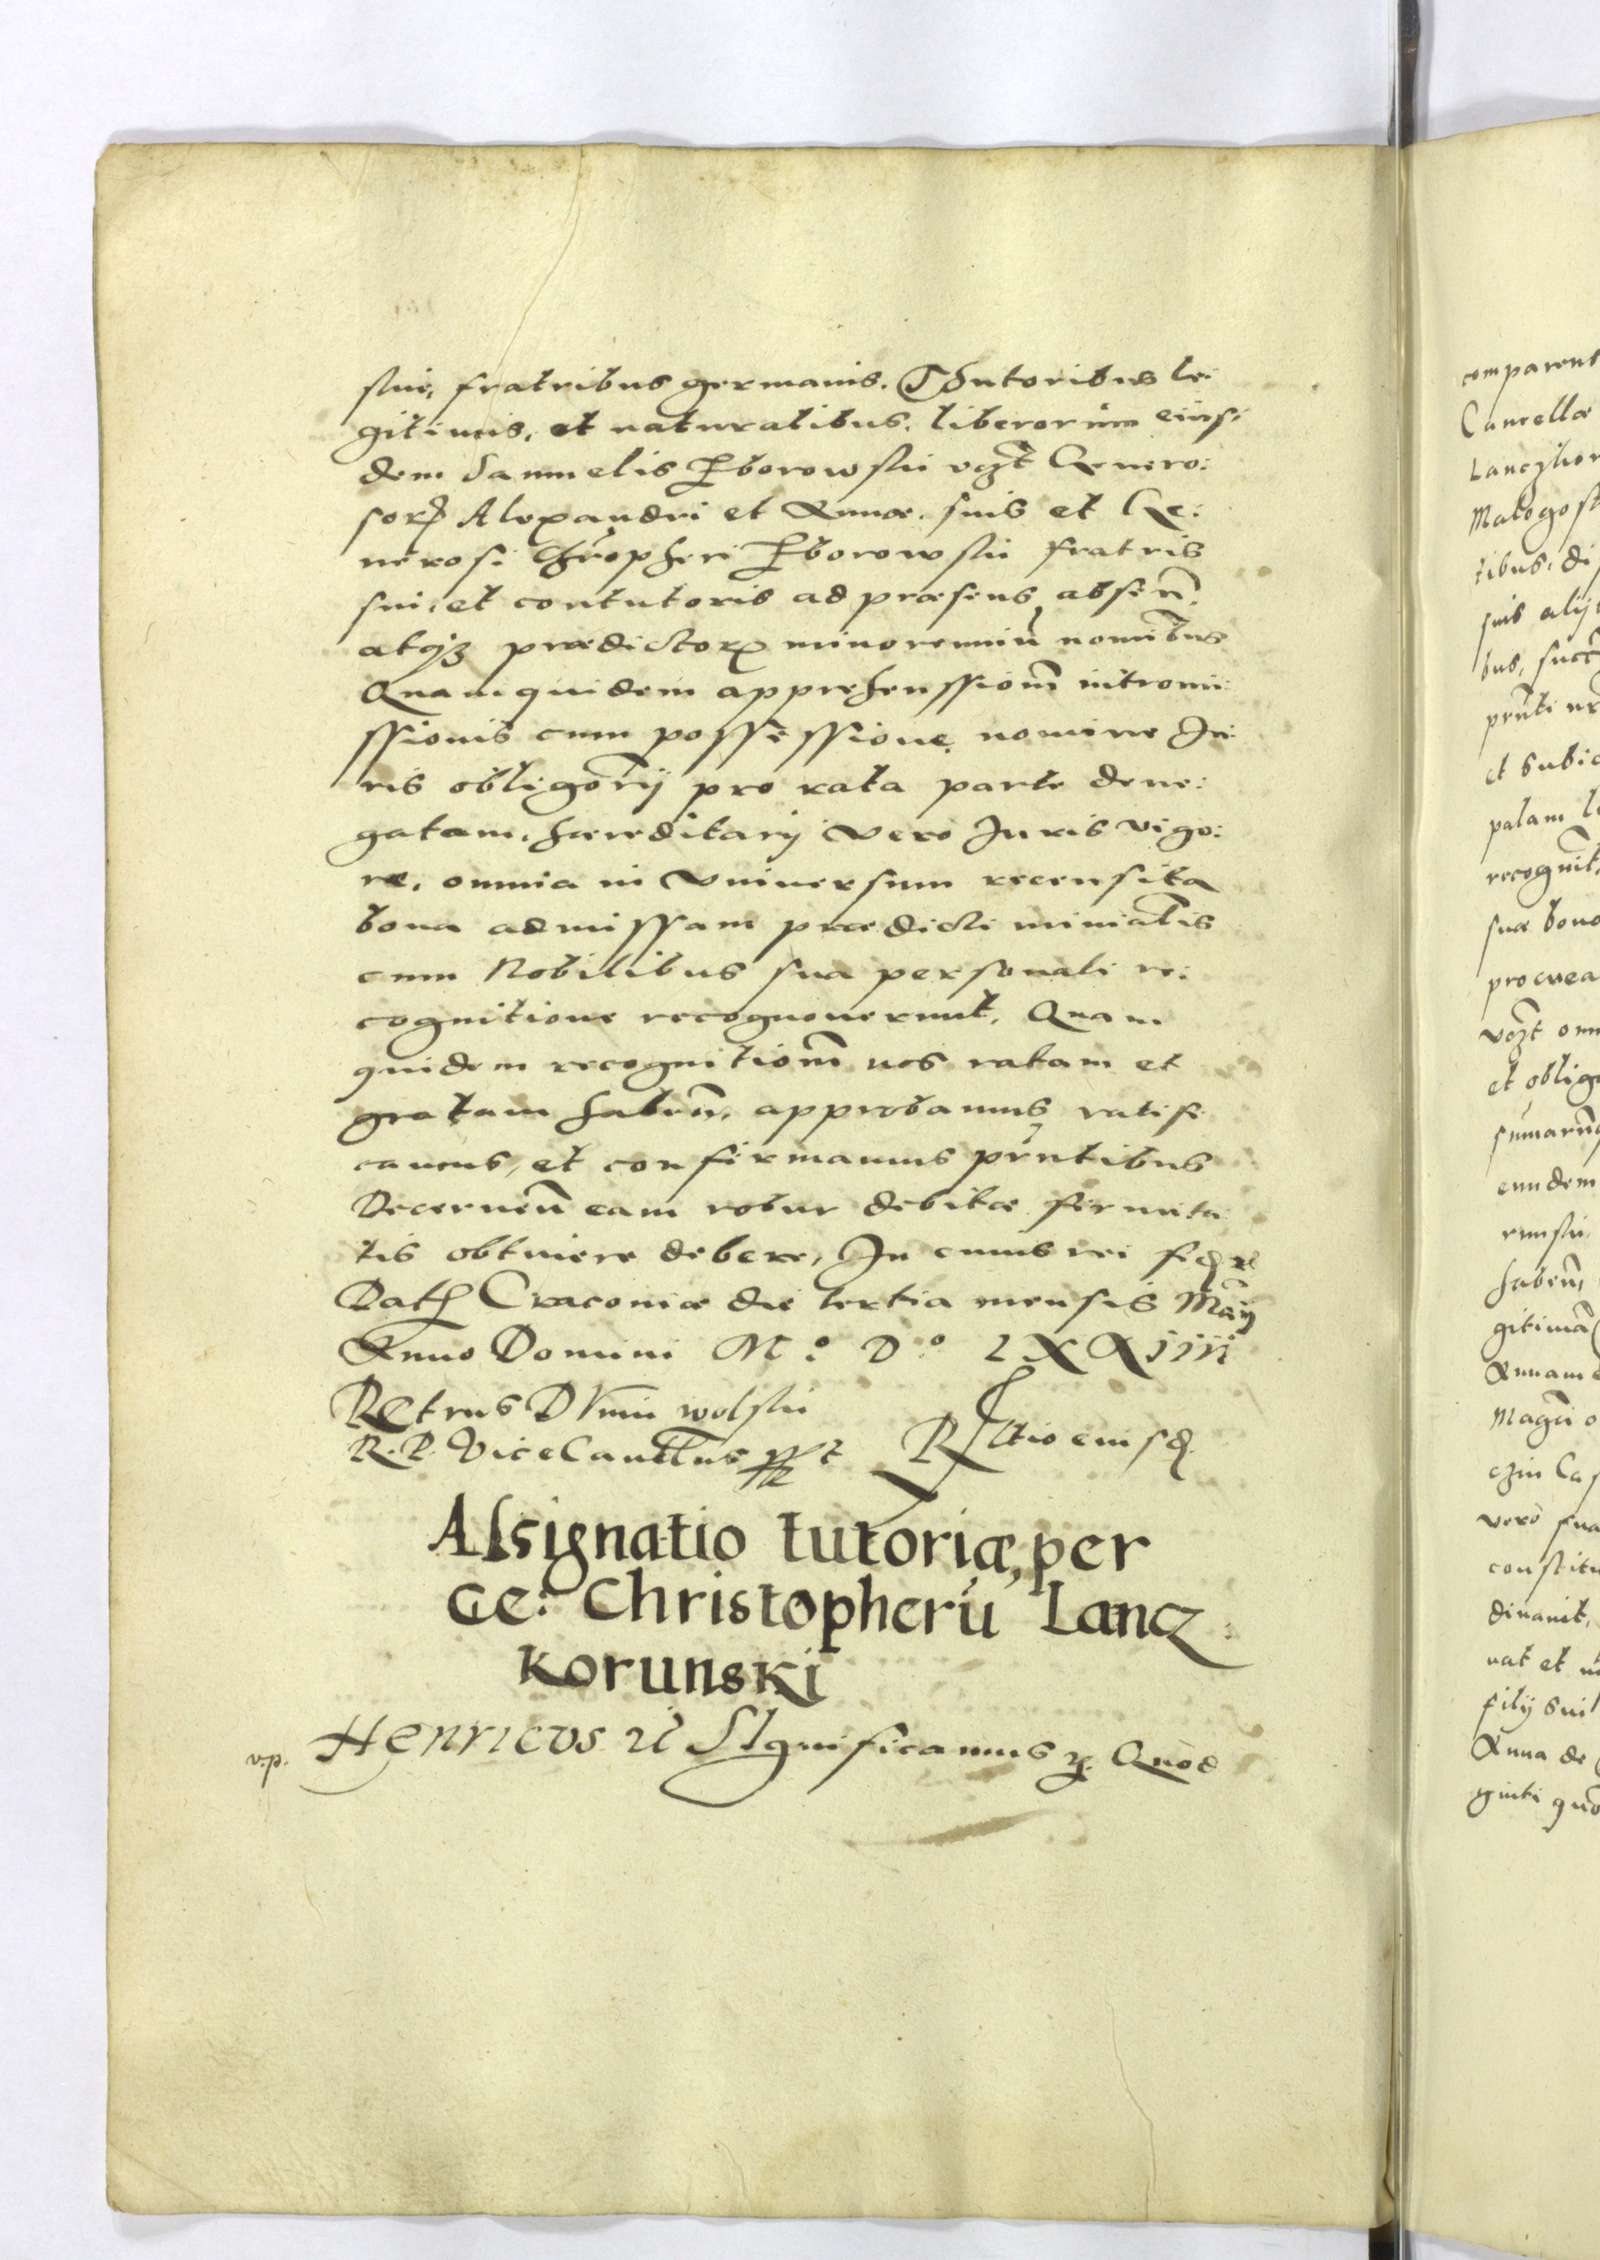 skie, fratribus germanis, Tutoribus le:
gitimis, et naturalibus, liberorum eius:
dem Samuelis Sborowskii vczt Genero:
sorz Alexandri et Annæ, suis et Ge:
nerosi Chrophori Sborowskii fratris
sui, et contutoris ad præsens absen̄.
atqz prædictorz minorenniū nomībus
Quamquidem apprehenssionē intromi:
ssionis cum possessione nomine Ju:
ris obligōrij pro rata parte dene:
gatam, hæreditarij vero Juris vigo:
re, omnia in Vniuersum recensita
bona admissam prædicti minialis
cum Nobilibus sua personali re:
cognitione recognouerunt, Quam
quidem recognitionē nos ratam et
gratam haben̄, approbamus ratifi
camus, et confirmamus prn̄tibus
Decernen̄ eam robur debitæ firmita
tis obtinere debere, In cuius rei fidz
Datz Craconiæ die tertia mensis Maij
Anno Domini M.º D.º LXXiiii
PEtrus DVnin wolski
R. P. ViceCancllus sst Rlatio eiusdz
Assignatio tutoriæ, per
Ge: Christopherū Lancz
korunski
v.p. Henricus zc SIgnificamus zc. Quod
comparent
Cancellæ
Lanczkor
Malogos
tibus, di
suis alij
bus, succ
prn̄ti nr̄
et subic
palam l
recognit,
suæ bono
procrea
vczt omn
et oblig
sumarūq
eundem
runski
haben̄,
gitimā
Annam
Magci o
czin Cas
vero sua
constitu
dinauit,
uat et
filij sui
Anna de
ginti quo